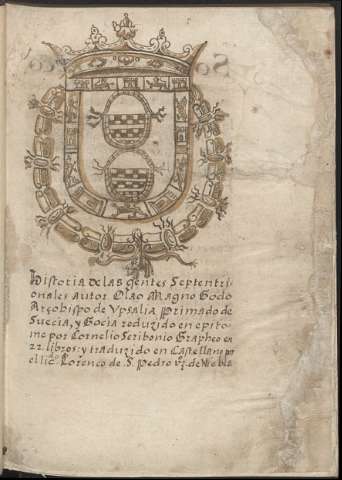 Historia de las gentes Septentri
onales autor Olao Magno Godo
Arçobispo de Vpsalia Primado de
Suecia, y Gocia reduzido en epito
me por Cornelio Scribonio Grapheo en
22. libros: y traduzido en Castellano por
el lic.do Lorenço de S. Pedro vz.o de Niebla